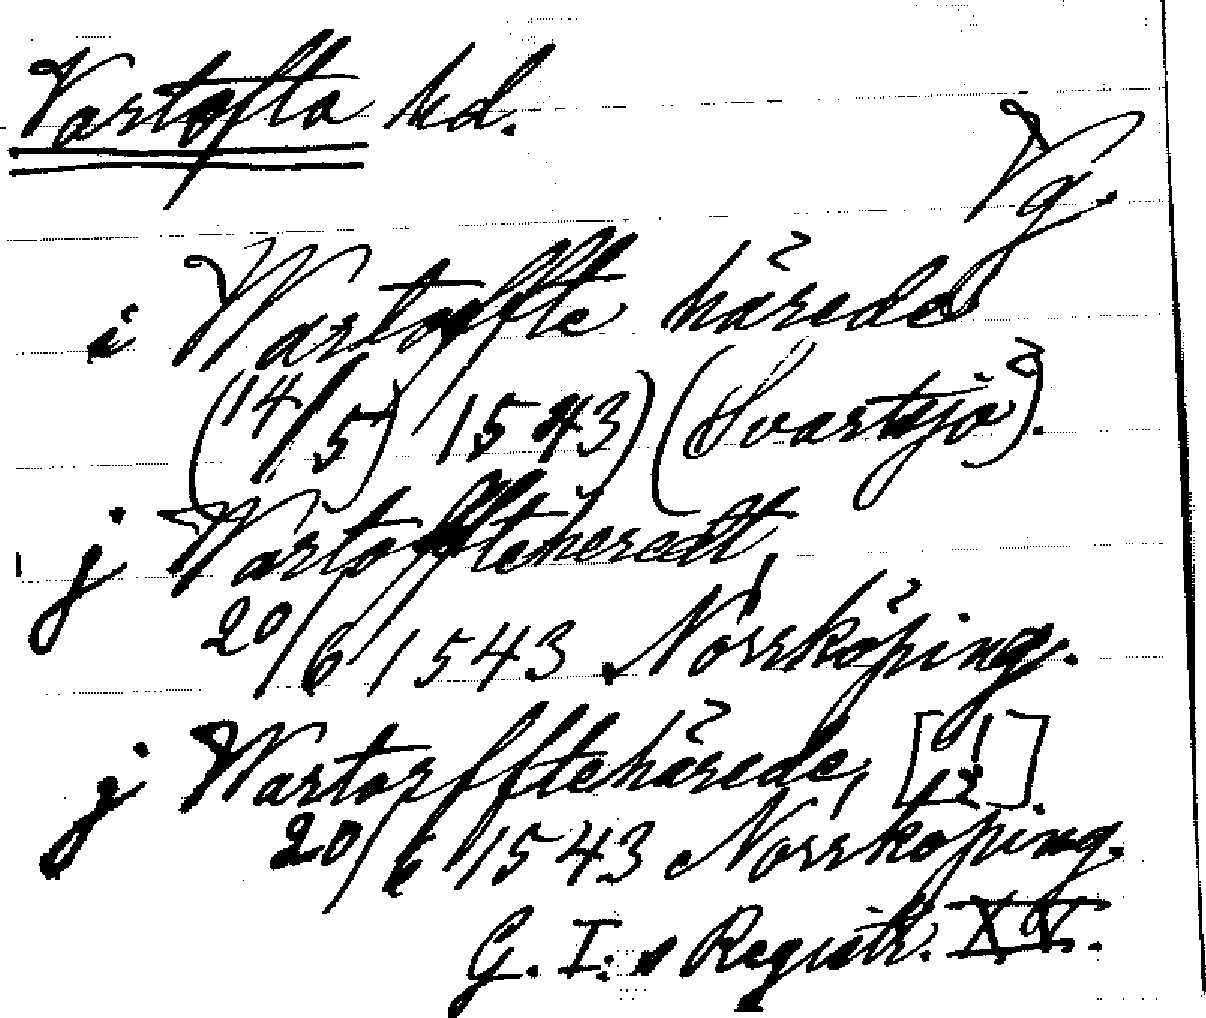 Vartofta hd.
Vg.
i Wartoffte härede
(14/5) 1543) (Svartsjö).
j Wartoffteheredt,
20/6 1543 Norrköping.
j Wartorfftehärede,
20/6 1543 Norrköping.
G. I:s Registr. XV.